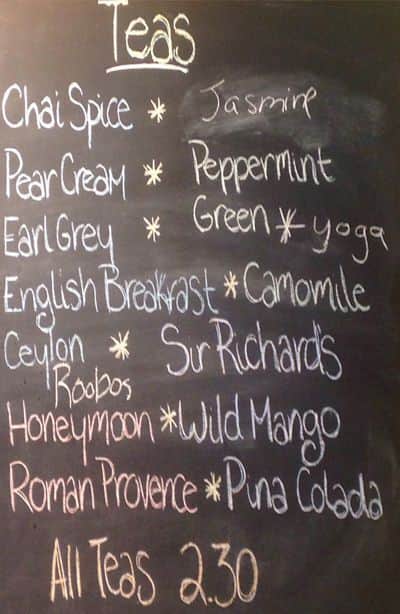 Teas
Chai Spice * Jasmine
Pear Cream * Peppermint
Earl Grey * Green * yoga
English Breakfast * Camomile
Ceylon * Sir Richard's
Roobos
Honeymoon * Wild Mango
Roman Provence * Pina Colada
All Teas 2.30